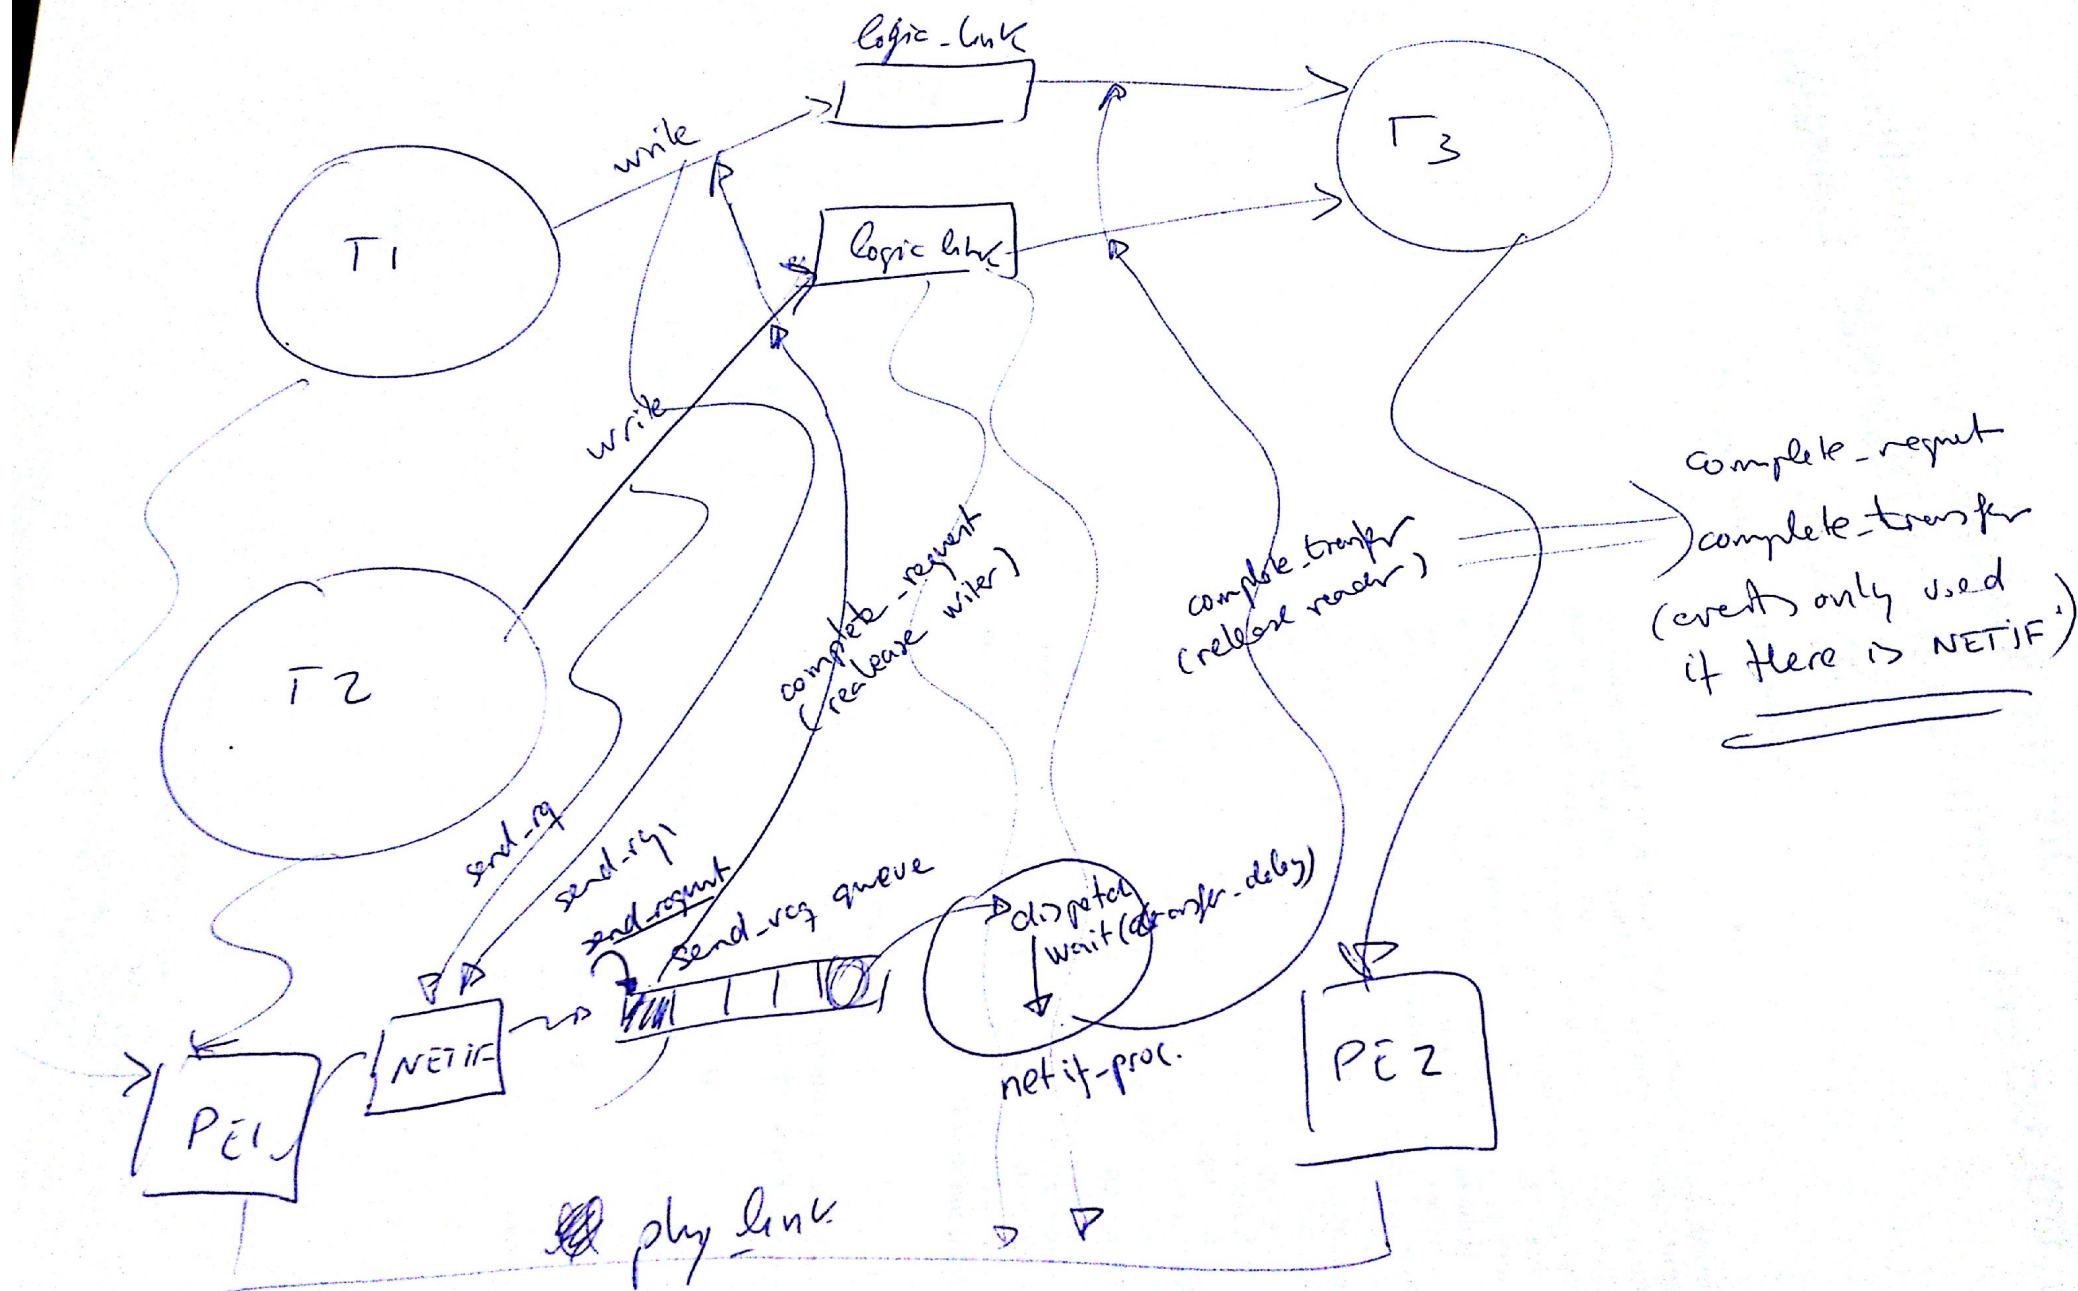 logic_link
write
T3
T1
logic link
write
complete_requet
complete_transfer
(events only used
if there is NETIF!)
complete_request
(realease writer)
complete_transfer
(release reader)
T2
send_rq
send_rq
send_request
send_req queue
dispatch
wait(transfer_delay)
netif_proc.
NETIF
PE1
PE2
phy_link